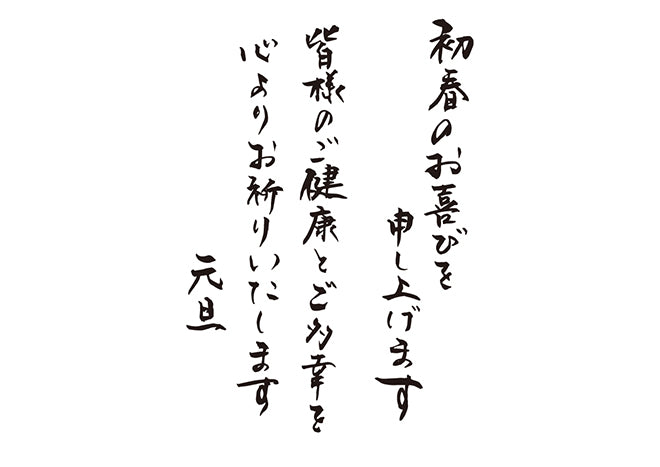 初春のお喜びを
申し上げます
皆様のご健康とご多幸を
心よりお祈りいたします
元旦